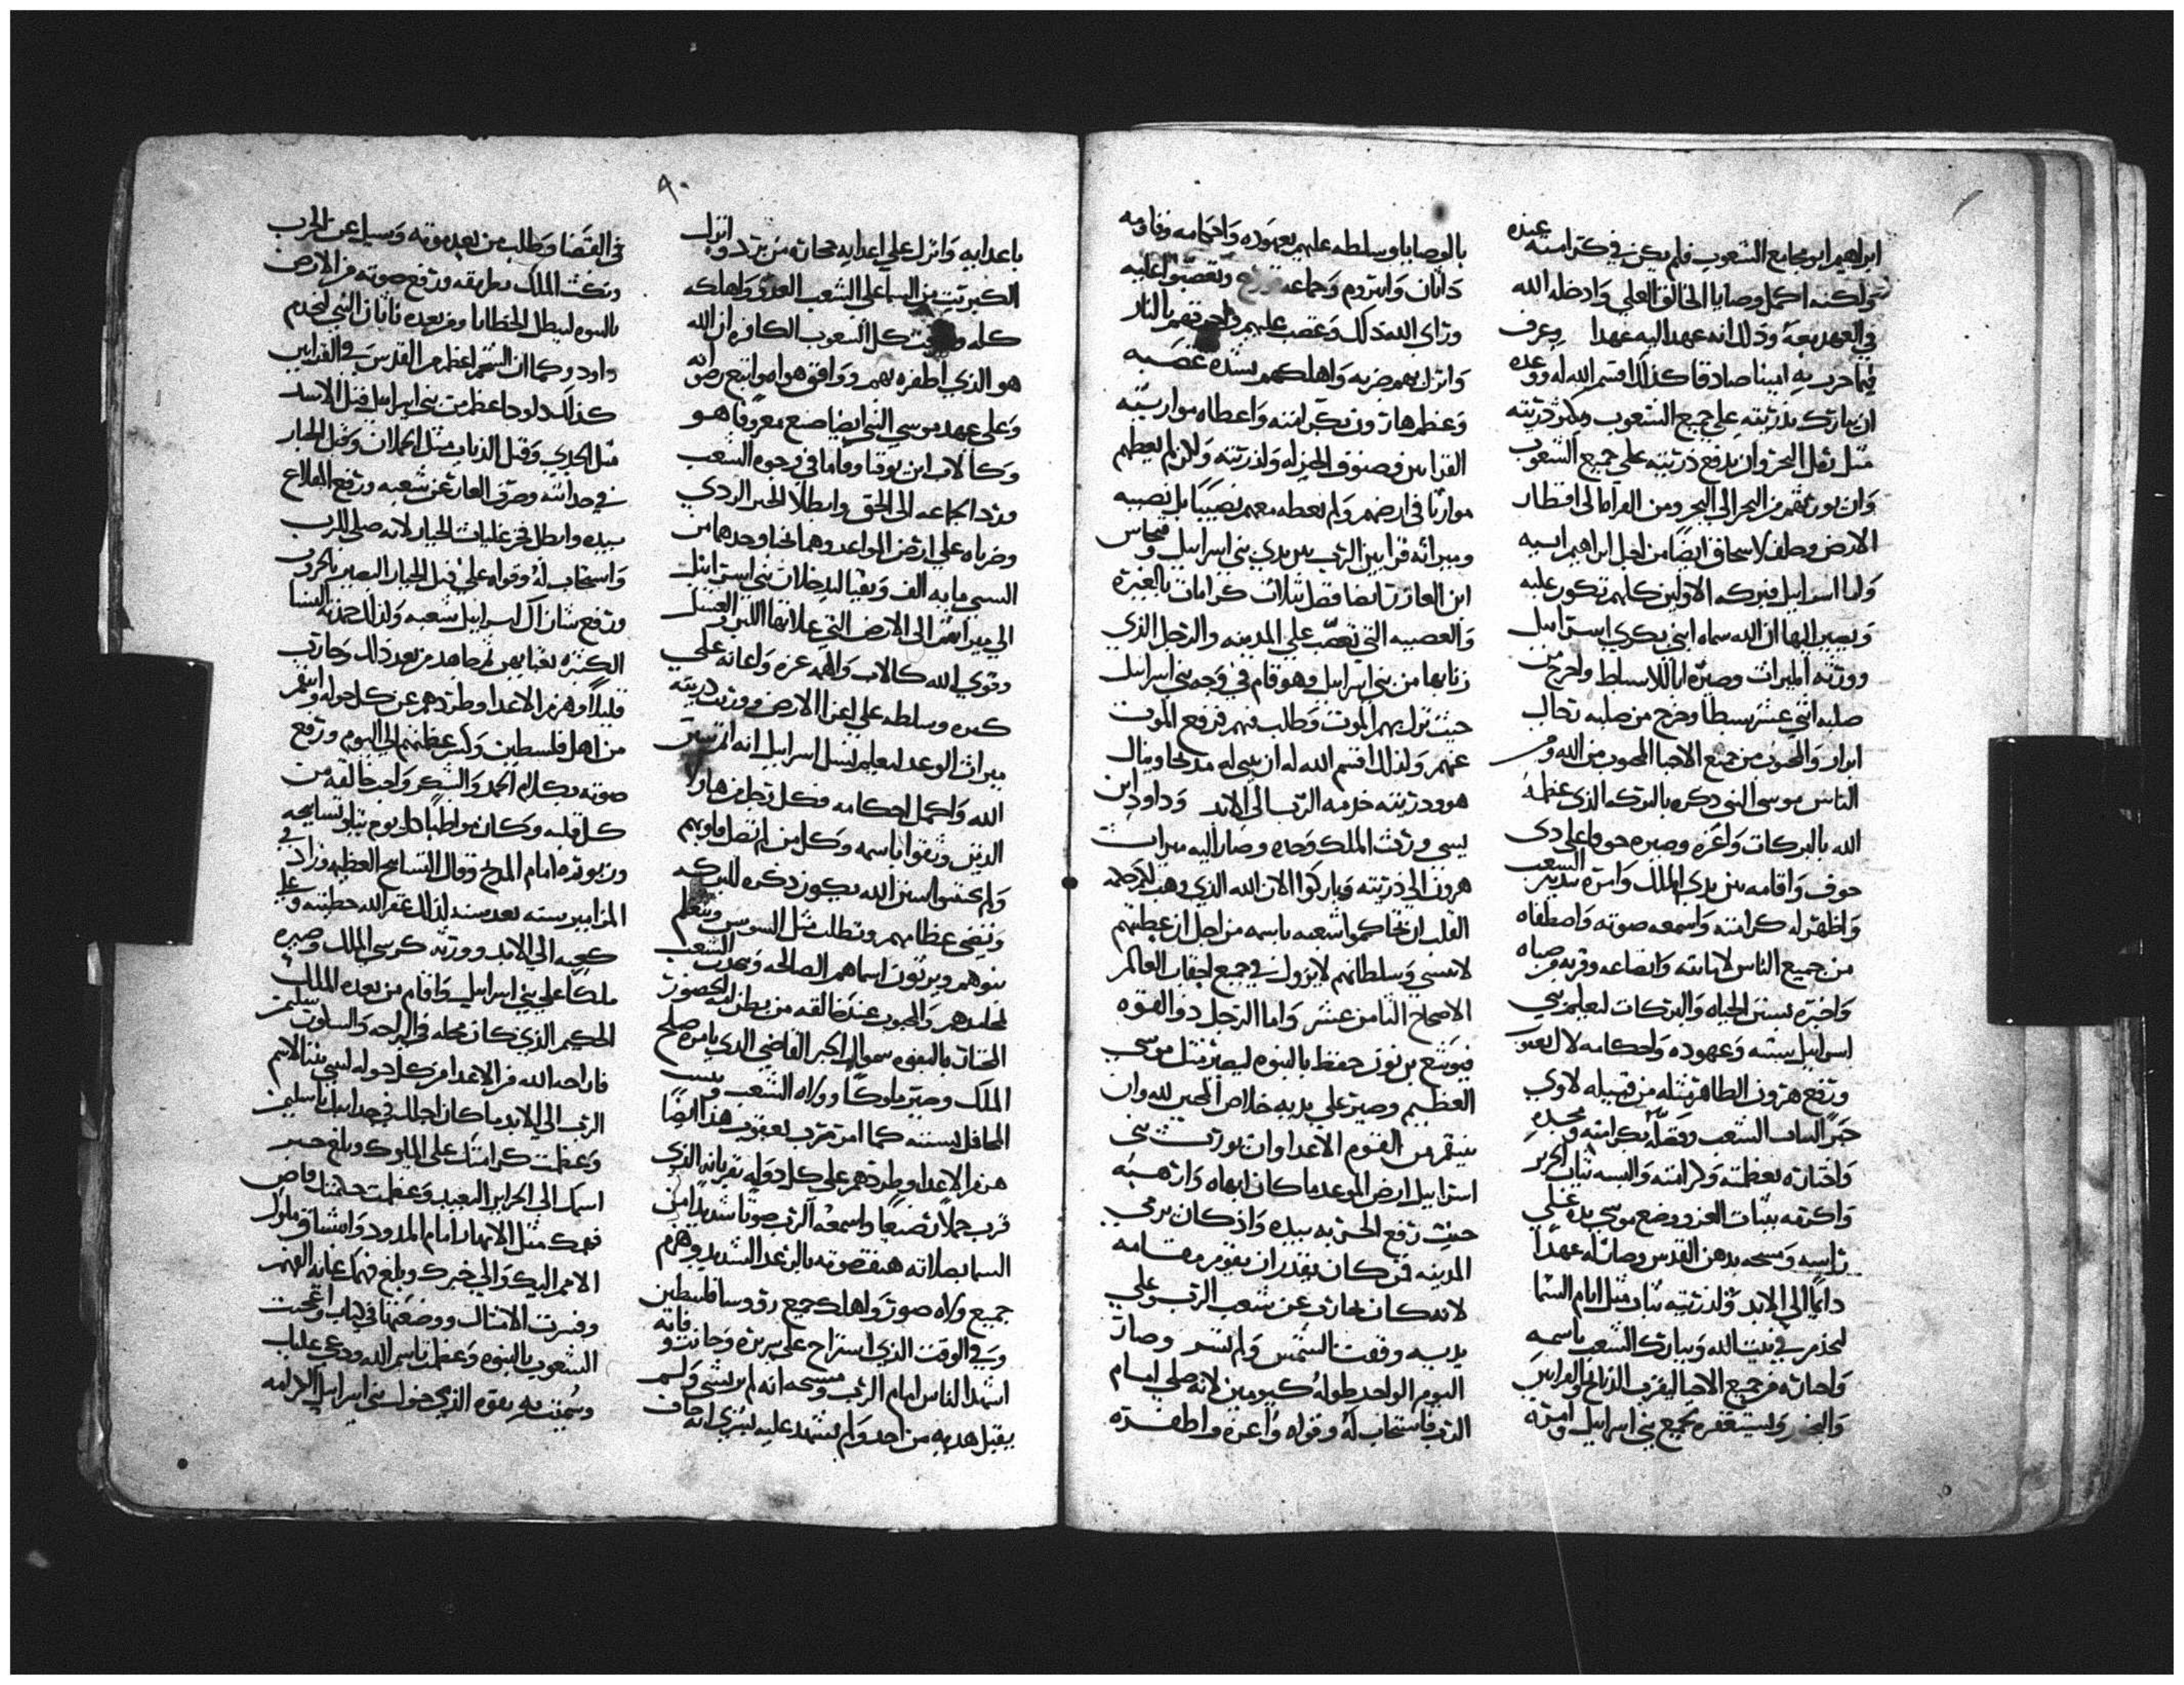 ابراهيم ابو مجامع الشعوب فلم يكن في كرامته عنده
ولكنه اكمل وصايا الخالق العلي وادخله الله
في العهد معه وذلك انه عهد اليه عهدا وعرف
فيما جرب به امينا صادقا كذلك اقسم الله له ووعده
ان يبارك بذريته علي جميع الشعوب ويكثر ذريته
مثل رمل البحر وان يرفع ذريته علي جميع الشعوب
وان يورثهم من البحر الي البحر ومن الفراه الي اقطار
الارض وحلف لاسحاق ايضا من اجل ابراهيم ابيه
واما اسراييل فبركه الاولين كلهم تكون عليه
ويصير اليها ان الله سماه ابني بكري اسراييل
وورثه الميراث وصيره ابا للاسباط واخرج من
صلبه اثني عشر سبطا وخرج من صلبه رجال
ابرار والمحبوب من جميع الاحيا المحبوب من الله ومن
الناس موسي النبي ذكره بالبركه الذي عظمه
الله بالبركات واعزه وصيره
واقامه بين يدي الملك وامره بتدبير الشعب
واظهر له كرامته واسمعه صوته واصطفاه
من جميع الناس لامانته واتضاعه وقربه
واخبره بسنن الحياه والبركات ليعلم بني
اسراييل سننه وعهوده واحكامه لال يعقوب
ورفع هرون الطاهر مثله من قبيله لاوي
وفضله بكرامته ومجده
واختاره بعظمته وكرامته والبسه ثياب
واكرمه بثياب العز ووضع موسي يده علي
راسه ومسحه بدهن القدس وصار له عهدا
دايما الي الابد ولذريته ثبات مثل ايام السما
ليخدم في بيت الله ويبارك الشعب باسمه
واختاره من جميع الاحيا ليقرب الذبايح والقرابين
والبخور وليستغفر لجميع بني اسراييل وامره
بالوصايا وسلطه عليهم بعهوده واحكامه وقاومه
داثان وابيروم وجماعه وتعصبوا عليه
وراي الله ذلك وغضب عليهم واحرقهم بالنار
وانزل بهم ضربه واهلكهم بشده غضبه
وعظم هارون بكرامته واعطاه مواريثه
القرابين وصنوف الخبز له ولذريته ولكن لم يعطهم
مواريثا في ارضهم ولم يعطه معهم نصيبا بل نصيبه
وميراثه قرابين الرب بين يدي بني اسراييل وفنحاس
ابن العازر ايضا فضل بثلاث كرامات بالغيره
والعصبيه التي تعصب علي المدينه والرجل الذي
زنا بها من بني اسراييل وهو قام في وجه بني اسراييل
حيث نزل بهم الموت وطلب فيهم فرفع الموت
عنهم ولذلك اقسم الله له ان يبني له مذبحا وينال
هو وذريته خدمه الرب الي الابد وداود ابن
يسي ورث الملك وحده وصار اليه ميراث
هرون الي ذريته وباركوا الان الله الذي وهب لكم حكمه
القلب ان تحاكموا شعبه باسمه من اجل ان عظمتهم
لا تنسي وسلطانهم لا يزول في جميع احقاب العالم
الاصحاح الثامن عشر واما الرجل ذو القوه
فيوشع بن نون حفظ بالنبوه ليصير مثل موسي
العظيم وصير علي يديه خلاص المحبين لله وان
ينتقم من القوم الاعدا وان يورث بني
اسراييل ارض الموعد ما كان ابهاه وارهبه
حيث رفع الحربه بيده واذ كان يرمي
المدينه فمن كان يقدر ان يقوم مقامه
لانه كان يحارب عن شعب الرب وعلي
يديه وقفت الشمس ولم تسر وصار
اليوم الواحد طوله كيومين لانه صلي امام
الرب فاستجاب له وقواه واعزه واظفره
باعدايه وانزل علي اعدايه حجاره من برد وانزل
الكبريت من السما علي الشعب العدو واهلكه
كله كل الشعوب الكافره ان الله
هو الذي اظفره بهم ووافق هو ايضا
وعلي عهد موسي النبي ايضا صنع معروفا هو
وكالاب ابن يوقنا وقاما في وجوه الشعب
ورد الجماعه الي الحق وابطلا الخبر الردي
السبي مايه الف وبقيا ليدخلان بني اسراييل
الي ميراثهم الي الارض التي غلاتها اللبن والعسل
وقوي الله كالاب والهمه عزه واعانه علي
كبره وسلطه علي اعدا الارض وورث ذريته
ميراث الوعد ليعلم نسل اسراييل انه
الله واكمل احكامه وكل رجل من هاولا
الذين وثقوا باسمه وكل من لم تضل قلوبهم
ولم الله يكون ذكره للبركه
وتضي عظامهم وتطلع مثل السوسن ويتعلم
بنوهم ويرثون اسماهم الصالحه ويحدث الشعب
بمحامدهم والمحبوب عند خالقه من بطن امه
المختار بالنبوه سموال الحبر القاضي الذي بامره صلح
الملك وصير ملوكا وولاه الشعب
المحافل بسننه كما امر قرب يعقوب هذا ايضا
هزم الاعدا وطردهم علي كل دوله بقربانه الذي
قرب حملا رضيعا واسمعه الرب صوتا شديدا من
السما بصلاته هتف صوته بالرعد الشديد وهزم
جميع ولاه صور واهلك جميع روسا فلسطين
وفي الوقت الذي استراح علي سريره
اشهد الناس امام الرب ومسيحه انه لم يرتشي ولم
يقبل هديه من احد ولم يشهد عليه بشري انه خاف
في القضا وطلب من بعد موته وسيل عن الحرب
الملك بطريقه ورفع صوته من الارض
بالنبوه ليبطل الخطايا ومن بعده ناثان النبي ليخدم
داود وكما ان الشحم اعظم من القدس في القرابين
كذلك داود اعظم من بني اسراييل قتل الاسد
مثل الجدي وقتل الذياب مثل الحملان وقتل الجبار
في حداثته وصرف العار عن شعبه ورفع المقلاع
بيده وابطل فخر غليات الجبار لانه صلي للرب
واستجاب له وقواه علي قتل الجبار البصير بالحروب
ورفع شان ال اسراييل شعبه ولذلك مدحته النسا
الكثيره من بعد ذلك وحارب
قليلا وهزم الاعدا وطردهم عن كل حوله وانتقم
من اهل فلسطين وكسر عظمتهم الي اليوم ورفع
صوته بكلام الحمد والشكر واحب خالقه من
كل قلبه وكان مواظبا كل يوم يتلو تسابيحه
امام المذبح وقال التسابيح العظيمه وزاد في
المزامير سنه بعد سنه لذلك غفر الله خطيته
الي الابد وورثه كرسي الملك وصيره
ملكا علي بني اسراييل واقام من بعده الملك
الحكيم الذي كان محله في الراحه والسلوه سليمن
فاراحه الله من الاعدا من كل حوله ليبني بيتا لاسم
الرب الي الابد ما كان اجلك في حداثتك يا سليمن
وعظمت كرامتك علي الملوك وبلغ خبر
اسمك الي الجزاير البعيده وعظمت حكمتك وفاض
فهمك مثل الانهار امام المدود واشتاق ملوك
الامم اليك والي خبرك وبلغ فهمك غايه الفهم
وفسرت الامثال ووضعتها في كتاب واعجبت
الشعوب بالنبوه وعظمت باسم الله ودعي عليك
وسميت به بقوه الذي بني اسراييل الكرامه